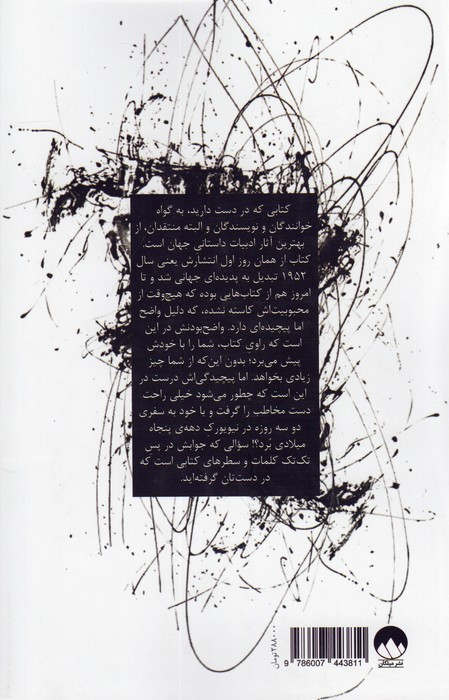 کتابی که در دست دارید، به گواه
خوانندگان و نویسندگان و البته منتقدان، از
بهترین آثار ادبیات داستانی جهان است.
کتاب از همان روز اول انتشارش یعنی سال
۱۹۵۲ تبدیل به پدیده‌ای جهانی شد و تا
امروز هم از کتاب‌هایی بوده که هیچ‌وقت از
محبوبیت‌اش کاسته نشده، که دلیل واضح
اما پیچیده‌ای دارد. واضح‌بودنش در این
است که راوی کتاب، شما را با خودش
پیش می‌برد؛ بدون این‌که از شما چیز
زیادی بخواهد. اما پیچیدگی‌اش درست در
این است که چطور می‌شود خیلی راحت
دست مخاطب را گرفت و با خود به سفری
دو سه روزه در نیویورک دهه‌ی پنجاه
میلادی بُرد؟! سؤالی که جوابش در پس
تک‌تک کلمات و سطرهای کتابی است که
در دست‌تان گرفته‌اید.
۲۸۸۰۰۰ تومان
9 786007 443811
نشر میلکان